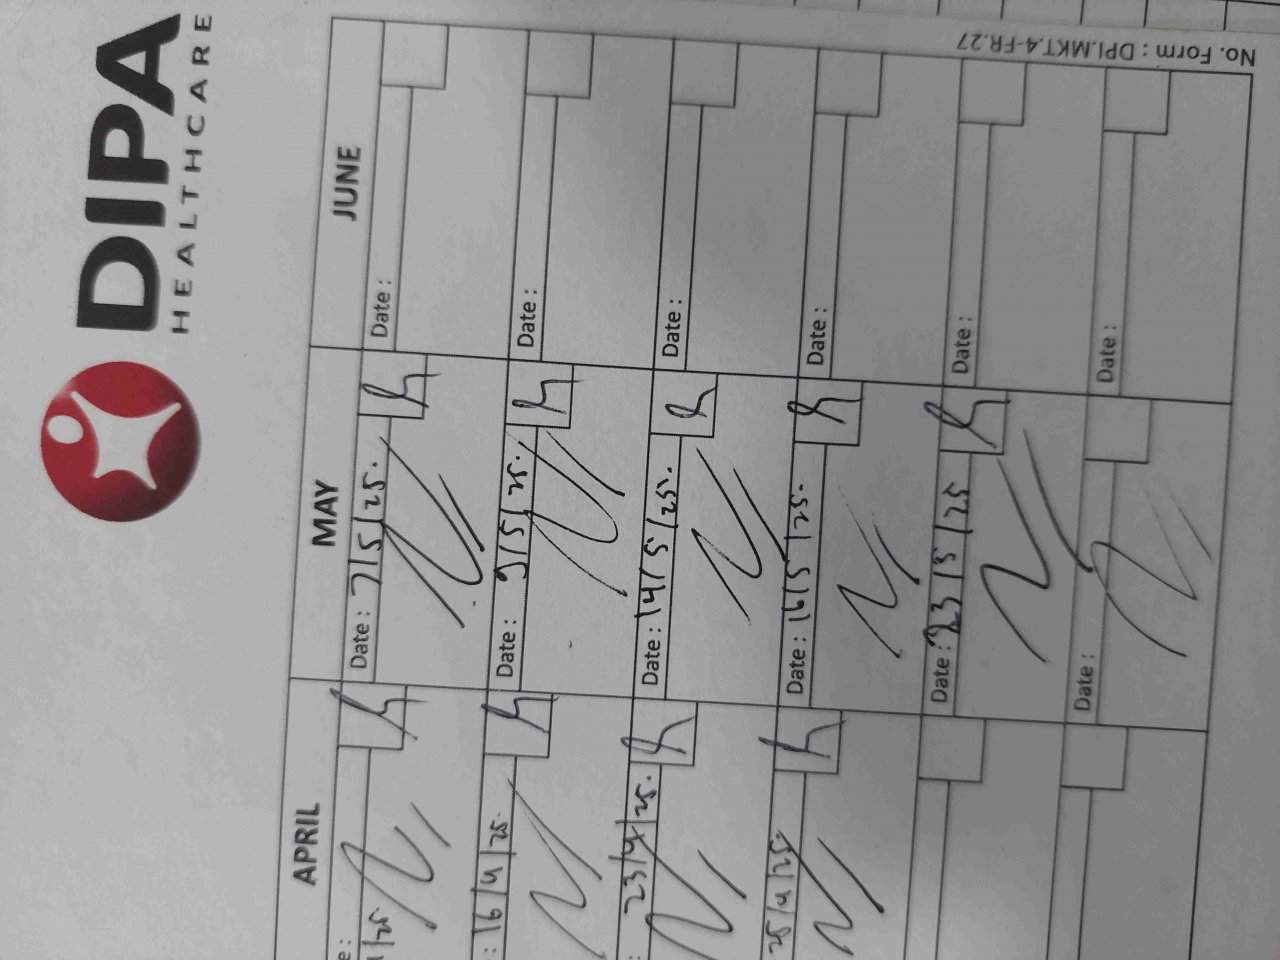 DIPA
HEALTHCARE
APRIL
MAY
JUNE
Date : 7/5/25.
Date :
: 16/4/25.
Date : 9/5/25.
Date :
: 23/4/25.
Date : 14/5/25.
Date :
25/4/25.
Date : 16/5/25.
Date :
Date : 23/5/25
Date :
Date :
Date :
No. Form : DPI.MKT.4-FR.27